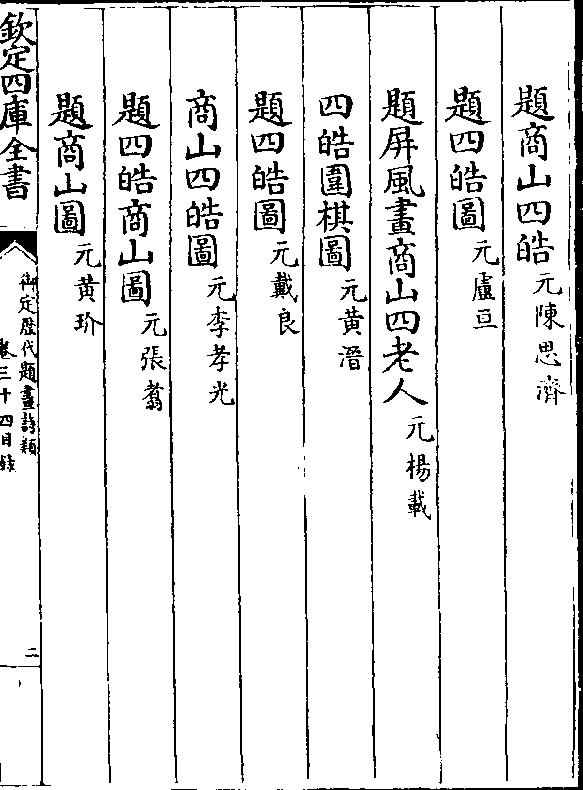 題商山四皓元陳思濟
題四皓圖元盧亘
題屏風畫商山四老人元楊載
四皓圍棋圖元黄溍
題四皓圖元戴良
商山四皓圖元李孝光
題四皓商山圖元張翥
題商山圖元黄玠
欽定四庫全書
御定歴代題畫詩類
卷三十四目録
二